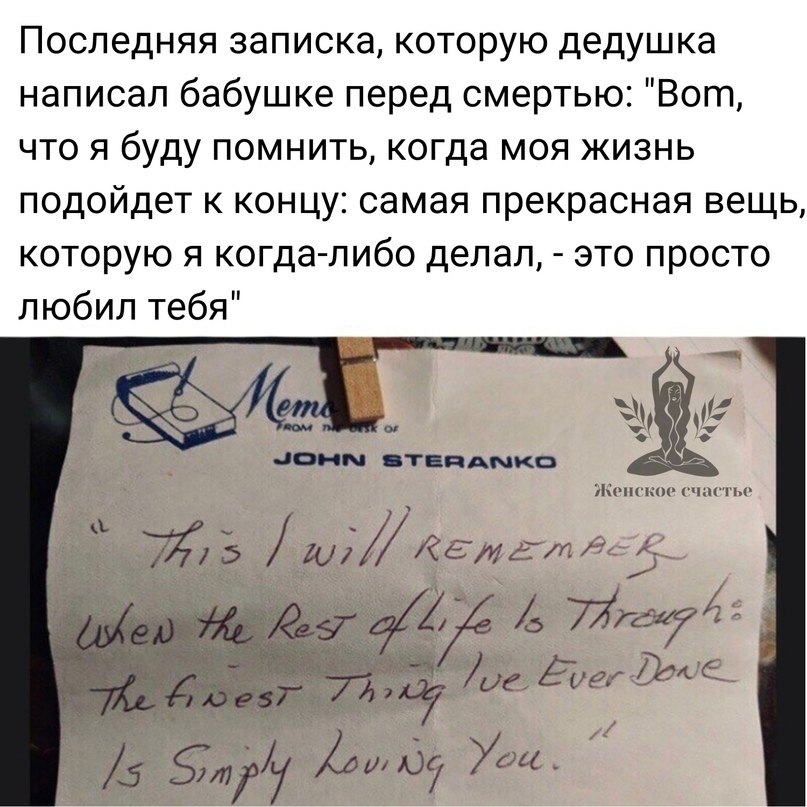 Последняя записка, которую дедушка
написал бабушке перед смертью: "Вот,
что я буду помнить, когда моя жизнь
подойдет к концу: самая прекрасная вещь,
которую я когда-либо делал, - это просто
любил тебя"
Memo
FROM THE DESK OF
JOHN STERANKO
Женское счастье
"This I will REMEMBER
When the Rest of Life Is Through:
The finest Thing I've Ever Done
Is Simply Loving You."